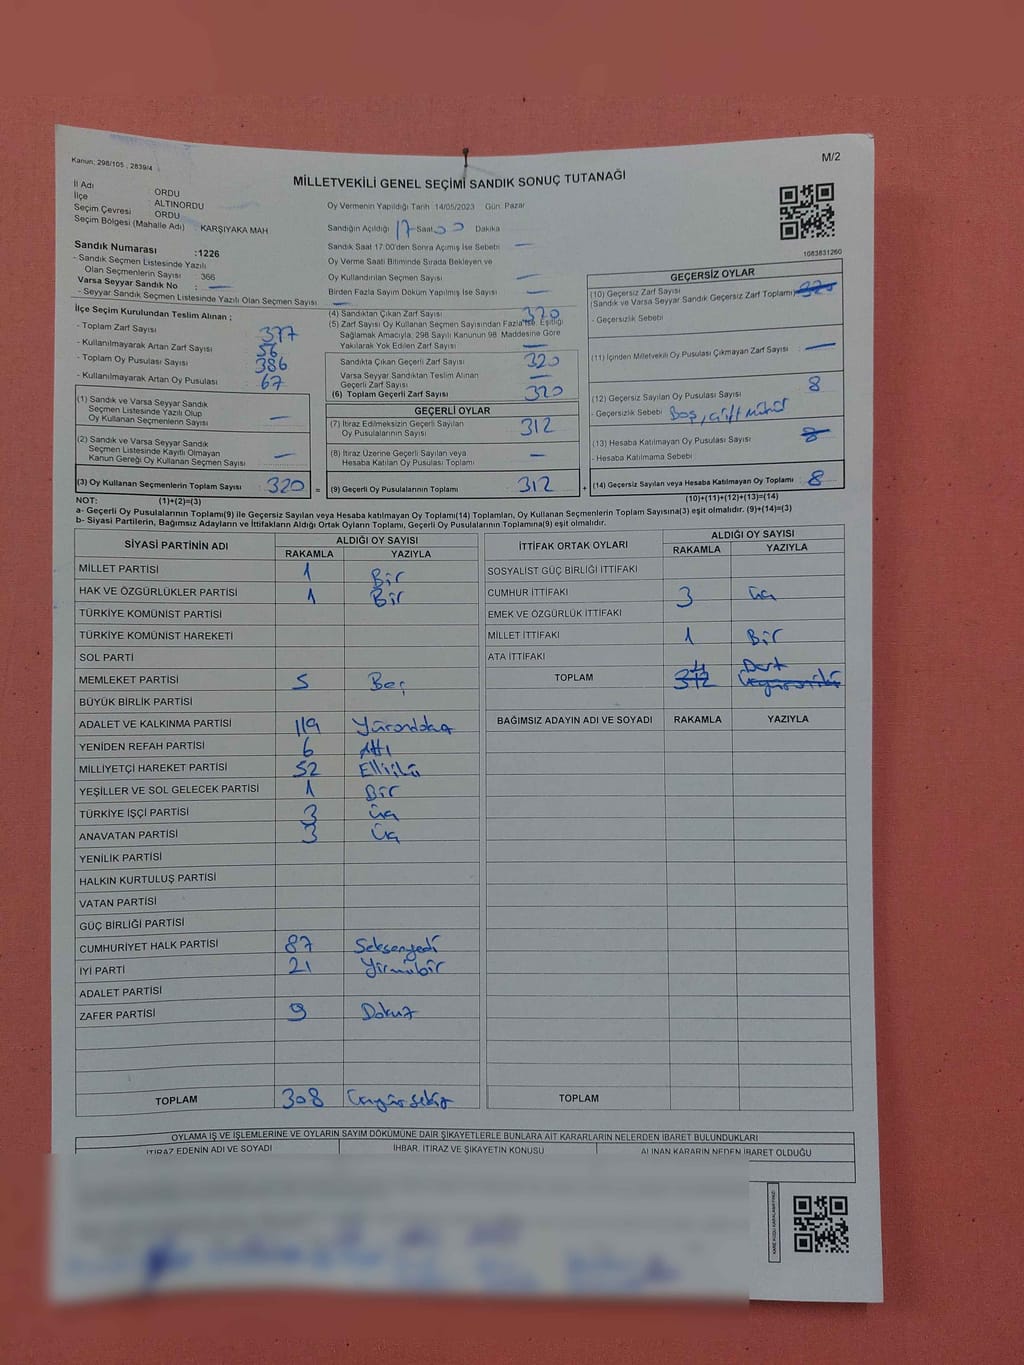 Kanun: 298/105 , 2839/4
M/2
MİLLETVEKİLİ GENEL SEÇİMİ SANDIK SONUÇ TUTANAĞI
İl Adı ORDU
İlçe ALTINORDU
Seçim Çevresi ORDU
Seçim Bölgesi (Mahalle Adı) : KARŞIYAKA MAH
Sandık Numarası :1226
- Sandık Seçmen Listesinde Yazılı
Olan Seçmenlerin Sayısı 366
Varsa Seyyar Sandık No : —
- Seyyar Sandık Seçmen Listesinde Yazılı Olan Seçmen Sayısı: —
Oy Vermenin Yapıldığı Tarih :14/05/2023 Gün: Pazar
Sandığın Açıldığı 17 Saat 00 Dakika
Sandık Saat 17:00'den Sonra Açımış İse Sebebi —
Oy Verme Saati Bitiminde Sırada Bekleyen ve
Oy Kullandırılan Seçmen Sayısı —
Birden Fazla Sayım Döküm Yapılmış İse Sayısı —
1083831260
İlçe Seçim Kurulundan Teslim Alınan ;
- Toplam Zarf Sayısı 377
- Kullanılmayarak Artan Zarf Sayısı 56
- Toplam Oy Pusulası Sayısı 386
- Kullanılmayarak Artan Oy Pusulası 67
(1) Sandık ve Varsa Seyyar Sandık
Seçmen Listesinde Yazılı Olup
Oy Kullanan Seçmenlerin Sayısı —
(2) Sandık ve Varsa Seyyar Sandık
Seçmen Listesinde Kayıtlı Olmayan
Kanun Gereği Oy Kullanan Seçmen Sayısı —
(3) Oy Kullanan Seçmenlerin Toplam Sayısı 320 =
(4) Sandıktan Çıkan Zarf Sayısı 320
(5) Zarf Sayısı Oy Kullanan Seçmen Sayısından Fazla İse, Eşitliği
Sağlamak Amacıyla, 298 Sayılı Kanunun 98. Maddesine Göre
Yakılarak Yok Edilen Zarf Sayısı —
Sandıkta Çıkan Geçerli Zarf Sayısı 320
Varsa Seyyar Sandıktan Teslim Alınan
Geçerli Zarf Sayısı —
(6) Toplam Geçerli Zarf Sayısı 320
GEÇERLİ OYLAR
(7) İtiraz Edilmeksizin Geçerli Sayılan
Oy Pusulalarının Sayısı 312
(8) İtiraz Üzerine Geçerli Sayılan veya
Hesaba Katılan Oy Pusulası Toplamı —
(9) Geçerli Oy Pusulalarının Toplamı 312 +
GEÇERSİZ OYLAR
(10) Geçersiz Zarf Sayısı
(Sandık ve Varsa Seyyar Sandık Geçersiz Zarf Toplamı) 320
- Geçersizlik Sebebi
(11) İçinden Milletvekili Oy Pusulası Çıkmayan Zarf Sayısı —
(12) Geçersiz Sayılan Oy Pusulası Sayısı 8
- Geçersizlik Sebebi Boş, çift mühür
(13) Hesaba Katılmayan Oy Pusulası Sayısı 8
- Hesaba Katılmama Sebebi
(14) Geçersiz Sayılan veya Hesaba Katılmayan Oy Toplamı 8
NOT: (1)+(2)=(3) (10)+(11)+(12)+(13)=(14)
a- Geçerli Oy Pusulalarının Toplamı(9) ile Geçersiz Sayılan veya Hesaba katılmayan Oy Toplamı(14) Toplamları, Oy Kullanan Seçmenlerin Toplam Sayısına(3) eşit olmalıdır. (9)+(14)=(3)
b- Siyasi Partilerin, Bağımsız Adayların ve İttifakların Aldığı Ortak Oyların Toplamı, Geçerli Oy Pusulalarının Toplamına(9) eşit olmalıdır.
SİYASİ PARTİNİN ADI ALDIĞI OY SAYISI
RAKAMLA YAZIYLA
MİLLET PARTİSİ 1 Bir
HAK VE ÖZGÜRLÜKLER PARTİSİ 1 Bir
TÜRKİYE KOMÜNİST PARTİSİ
TÜRKİYE KOMÜNİST HAREKETİ
SOL PARTİ
MEMLEKET PARTİSİ 5 Beş
BÜYÜK BİRLİK PARTİSİ
ADALET VE KALKINMA PARTİSİ 119
YENİDEN REFAH PARTİSİ 6 Altı
MİLLİYETÇİ HAREKET PARTİSİ 52 Elliiki
YEŞİLLER VE SOL GELECEK PARTİSİ 1 Bir
TÜRKİYE İŞÇİ PARTİSİ 3 Üç
ANAVATAN PARTİSİ 3 Üç
YENİLİK PARTİSİ
HALKIN KURTULUŞ PARTİSİ
VATAN PARTİSİ
GÜÇ BİRLİĞİ PARTİSİ
CUMHURİYET HALK PARTİSİ 87 Seksenyedi
İYİ PARTİ 21 Yirmibir
ADALET PARTİSİ
ZAFER PARTİSİ 9 Dokuz
TOPLAM 308 Üçyüzsekiz
İTTİFAK ORTAK OYLARI ALDIĞI OY SAYISI
RAKAMLA YAZIYLA
SOSYALİST GÜÇ BİRLİĞİ İTTİFAKI
CUMHUR İTTİFAKI 3 Üç
EMEK VE ÖZGÜRLÜK İTTİFAKI
MİLLET İTTİFAKI 1 Bir
ATA İTTİFAKI
TOPLAM 4 312 Dört
BAĞIMSIZ ADAYIN ADI VE SOYADI RAKAMLA YAZIYLA
TOPLAM
OYLAMA İŞ VE İŞLEMLERİNE VE OYLARIN SAYIM DÖKÜMÜNE DAİR ŞİKAYETLERLE BUNLARA AİT KARARLARIN NELERDEN İBARET BULUNDUKLARI
İTİRAZ EDENİN ADI VE SOYADI İHBAR, İTİRAZ VE ŞİKAYETİN KONUSU ALINAN KARARIN NEDEN İBARET OLDUĞU